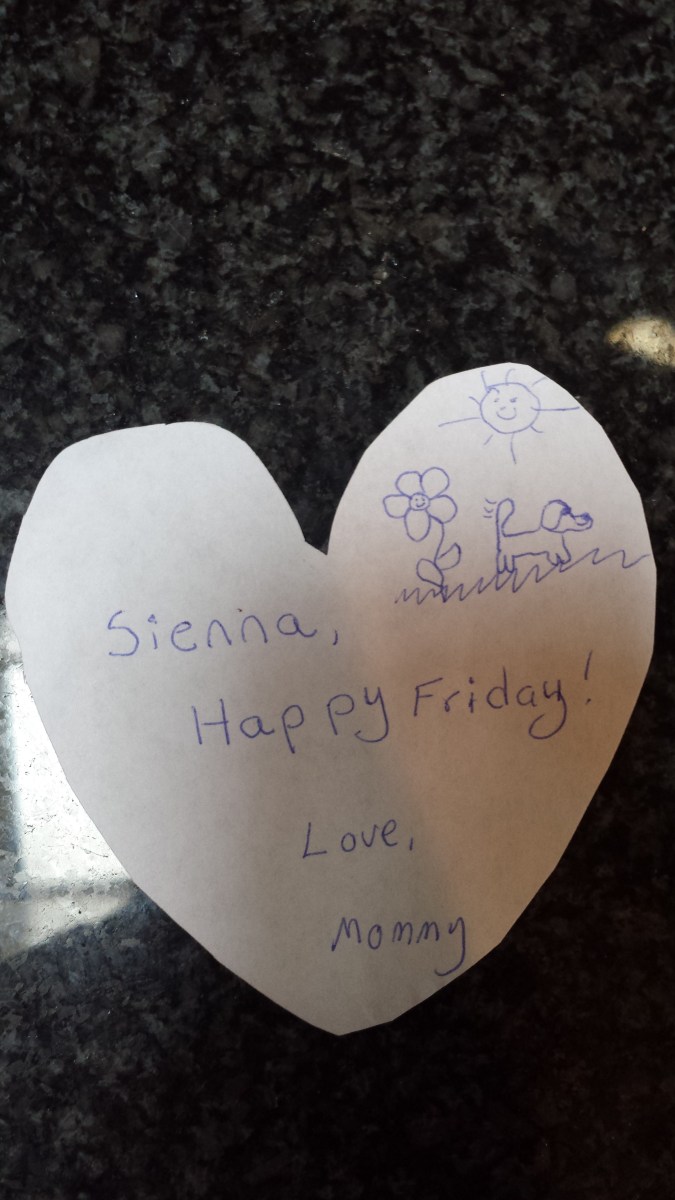 Sienna,
Happy Friday!
Love,
Mommy